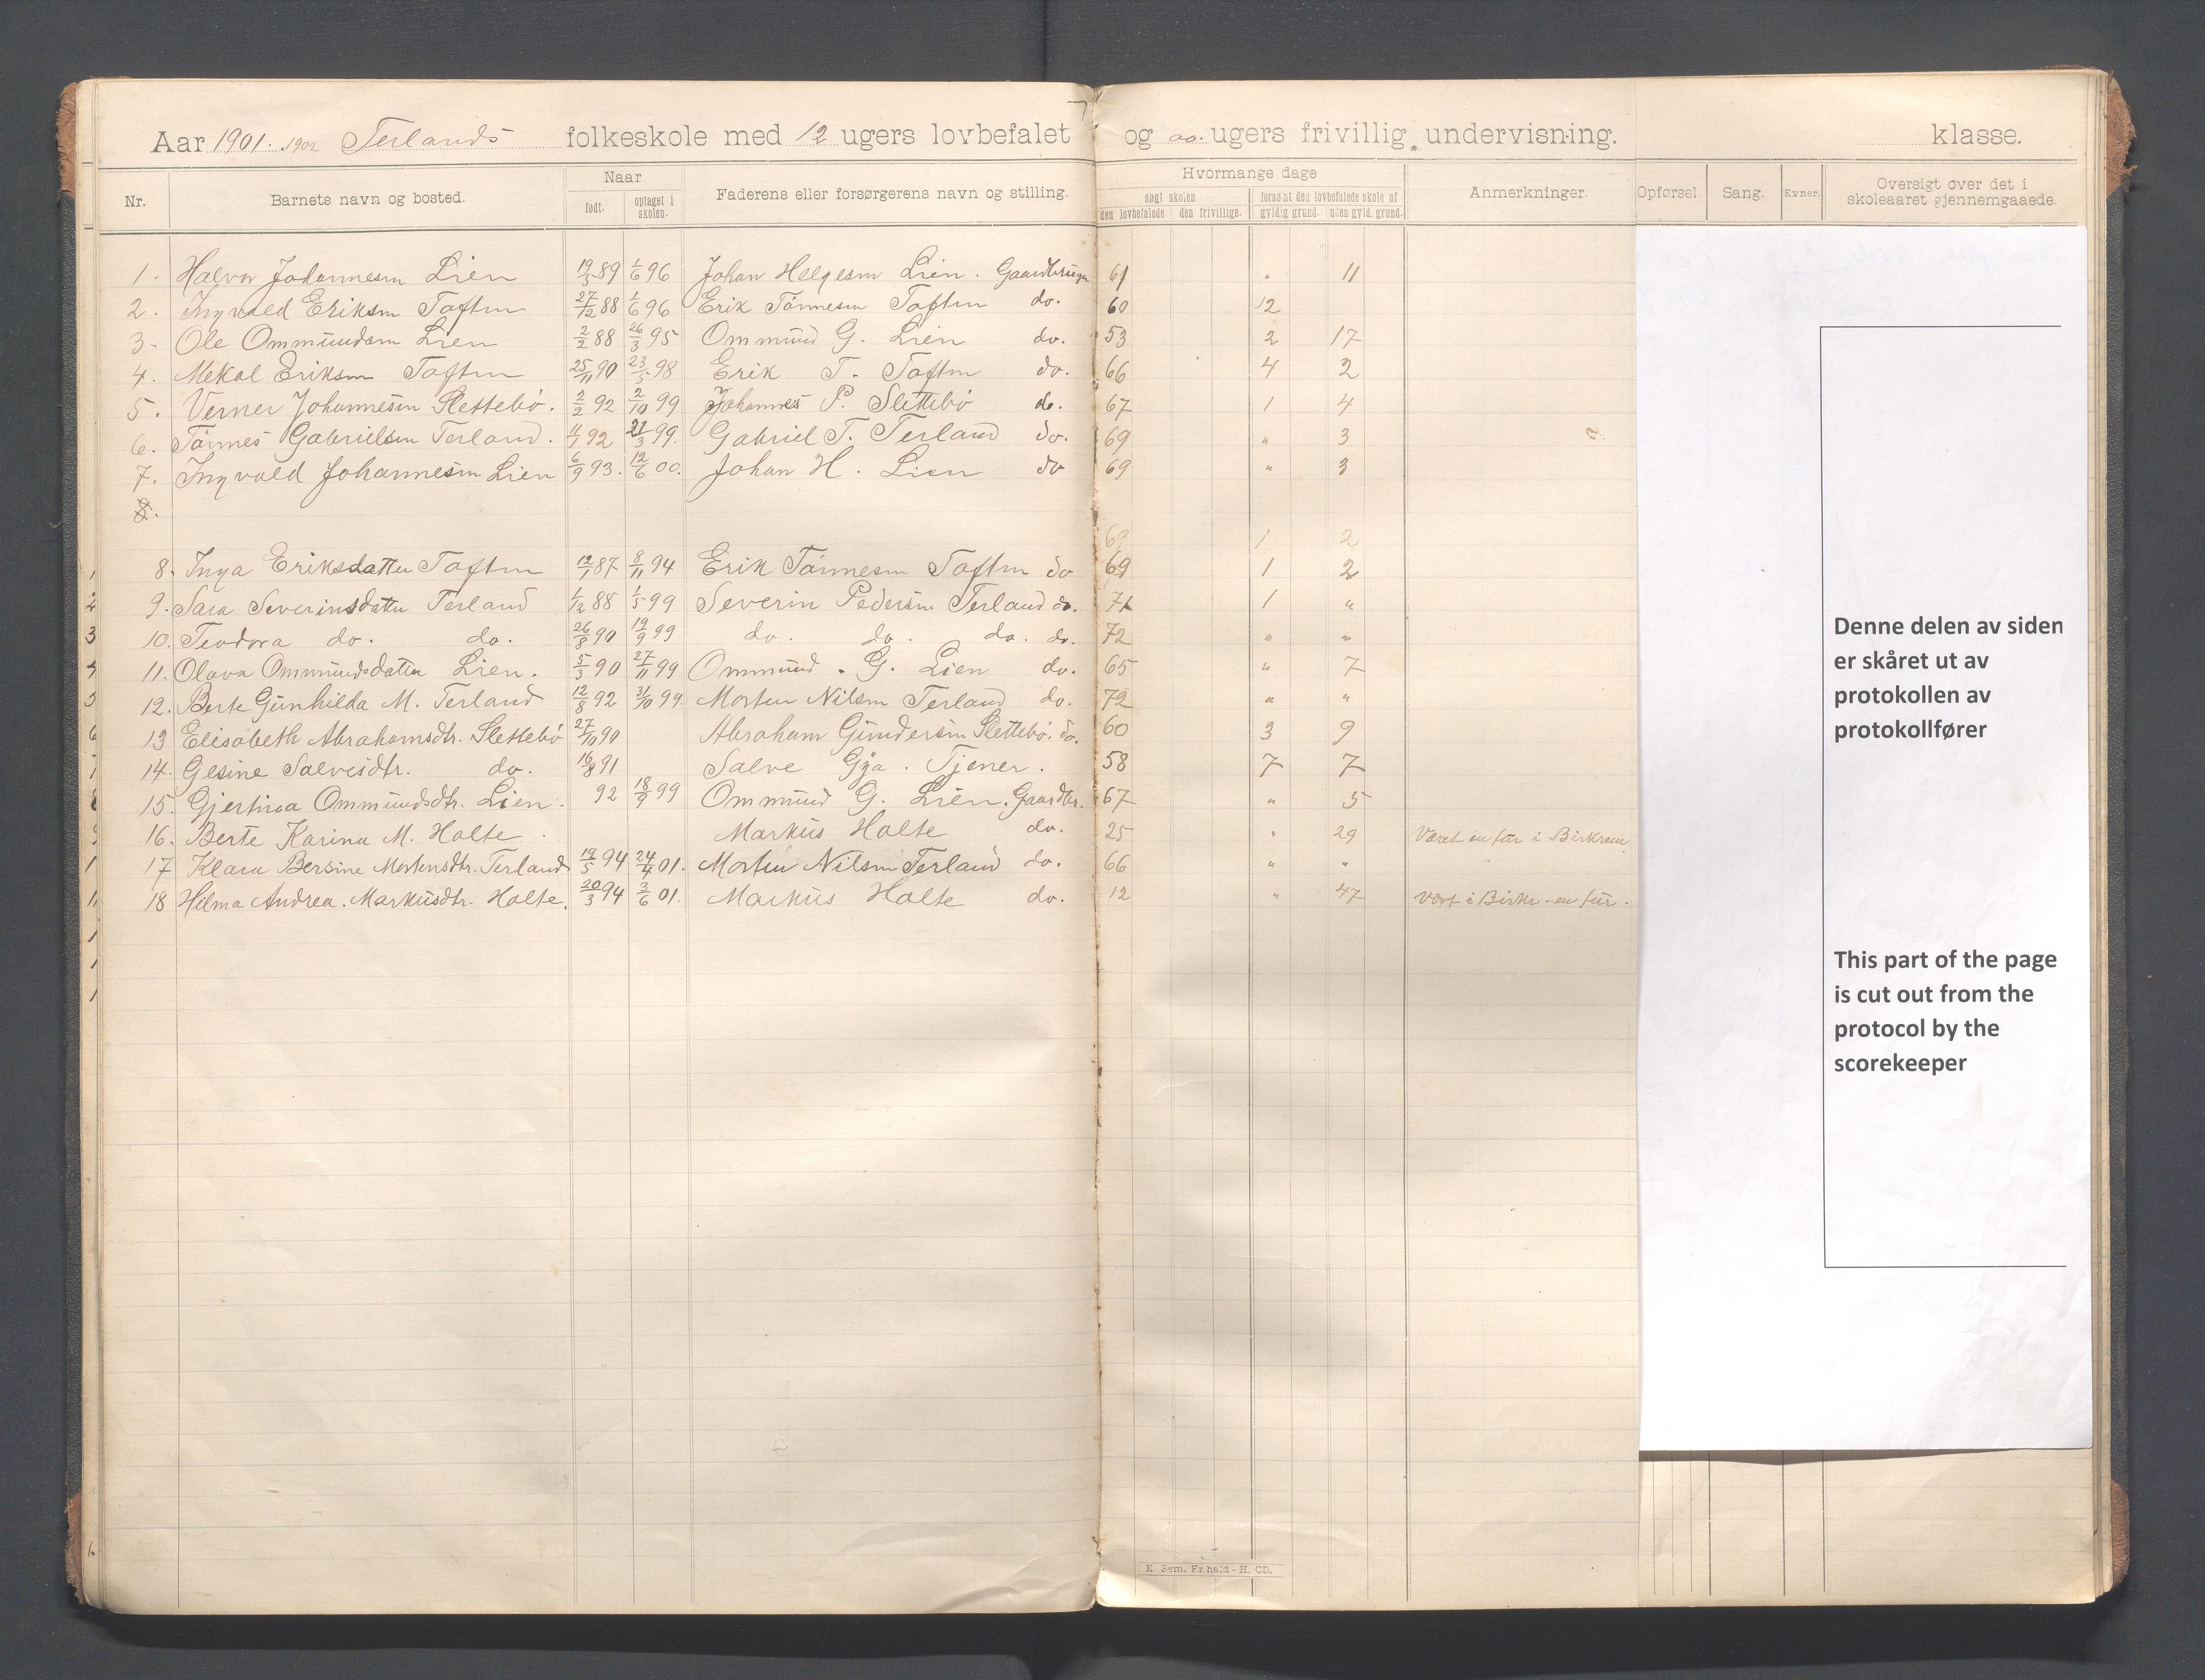 Aar 1901. 1902 Terlands folkeskole med 12 ugers lovbefalet og ugers frivillig undervisning. klasse.
Nr. Barnets navn og bosted. Naar født. optaget i skolen. Faderens eller forsørgerens navn og stilling. Hvormange dage søgt skolen den lovbefalede den frivillige. forsømt den lovbefalede skole af gyldig grund. uden gyld. grund. Anmerkninger. Opførsel Sang. Evner. Oversigt over det i skoleaaret gjennemgaaede.
1. Halvor Johannesen Lien 19/5 89 1/6 96 Johan Helgesen Lien. Gaardbruger 61 " 11
2. Ingvald Eriksen Toften 27/12 88 1/6 96 Erik Tönnesen Toften do. 60 12
3. Ole Ommundsen Lien 2/2 88 26/3 95 Ommund G. Lien do. 53 2 17
4. Mekal Eriksen Toften 25/11 90 23/5 98 Erik T. Toften do. 66 4 2
5. Verner Johannesen Slettebö. 2/2 92 2/10 99 Johannes P. Slettebö do. 67 1 4
6. Tönnes Gabrielsen Terland. 11/1 92 21/3 99. Gabriel T. Terland do. 69 " 3
7. Ingvald Johannesen Lien 6/9 93. 12/6 00. Johan H. Lien do 69 " 3
8.
1 2
8. Inga Eriksdatter Toften 12/1 87 8/11 94 Erik Tönnesen Toften do 69 1 2
9. Sara Severinsdatter Terland 1/12 88 1/5 99 Severin Pedersen Terland do. 71 1 "
10. Teodora do. do. 26/8 90 19/9 99 do. do. do. do. 72 " "
11. Olava Ommundsdatter Lien. 5/3 90 27/11 99 Ommund G. Lien do. 65 " 7
12. Berte Gunhilda M. Terland 12/8 92 31/10 99 Morten Nilsen Terland do. 72 " "
13 Elisabeth Abrahamsdtr. Slettebö 27/10 90 Abraham Gundersen Slettebö. do. 60 3 9
14. Gesine Salvesdtr. do. 16/8 91 Salve Gya. Tjener. 58 7 7
15. Gjertina Ommundsdtr. Lien. 92 18/9 99 Ommund G. Lien. Gaardbr. 67 " 5
16. Berte Karina M. Holte. Markus Holte do. 25 " 29 Været en tur i Birkrem
17 Klara Bersine Mortensdtr. Terland 19/5 94 24/4 01. Morten Nilsen Terland do. 66 " "
18 Helma Andrea. Markusdtr. Holte. 20/3 94 3/6 01. Markus Holte do. 12 " 47 Vært i Birkr. en tur.
Denne delen av siden
er skåret ut av
protokollen av
protokollfører
This part of the page
is cut out from the
protocol by the
scorekeeper
E. Sem. Fr.hald - H. OD.